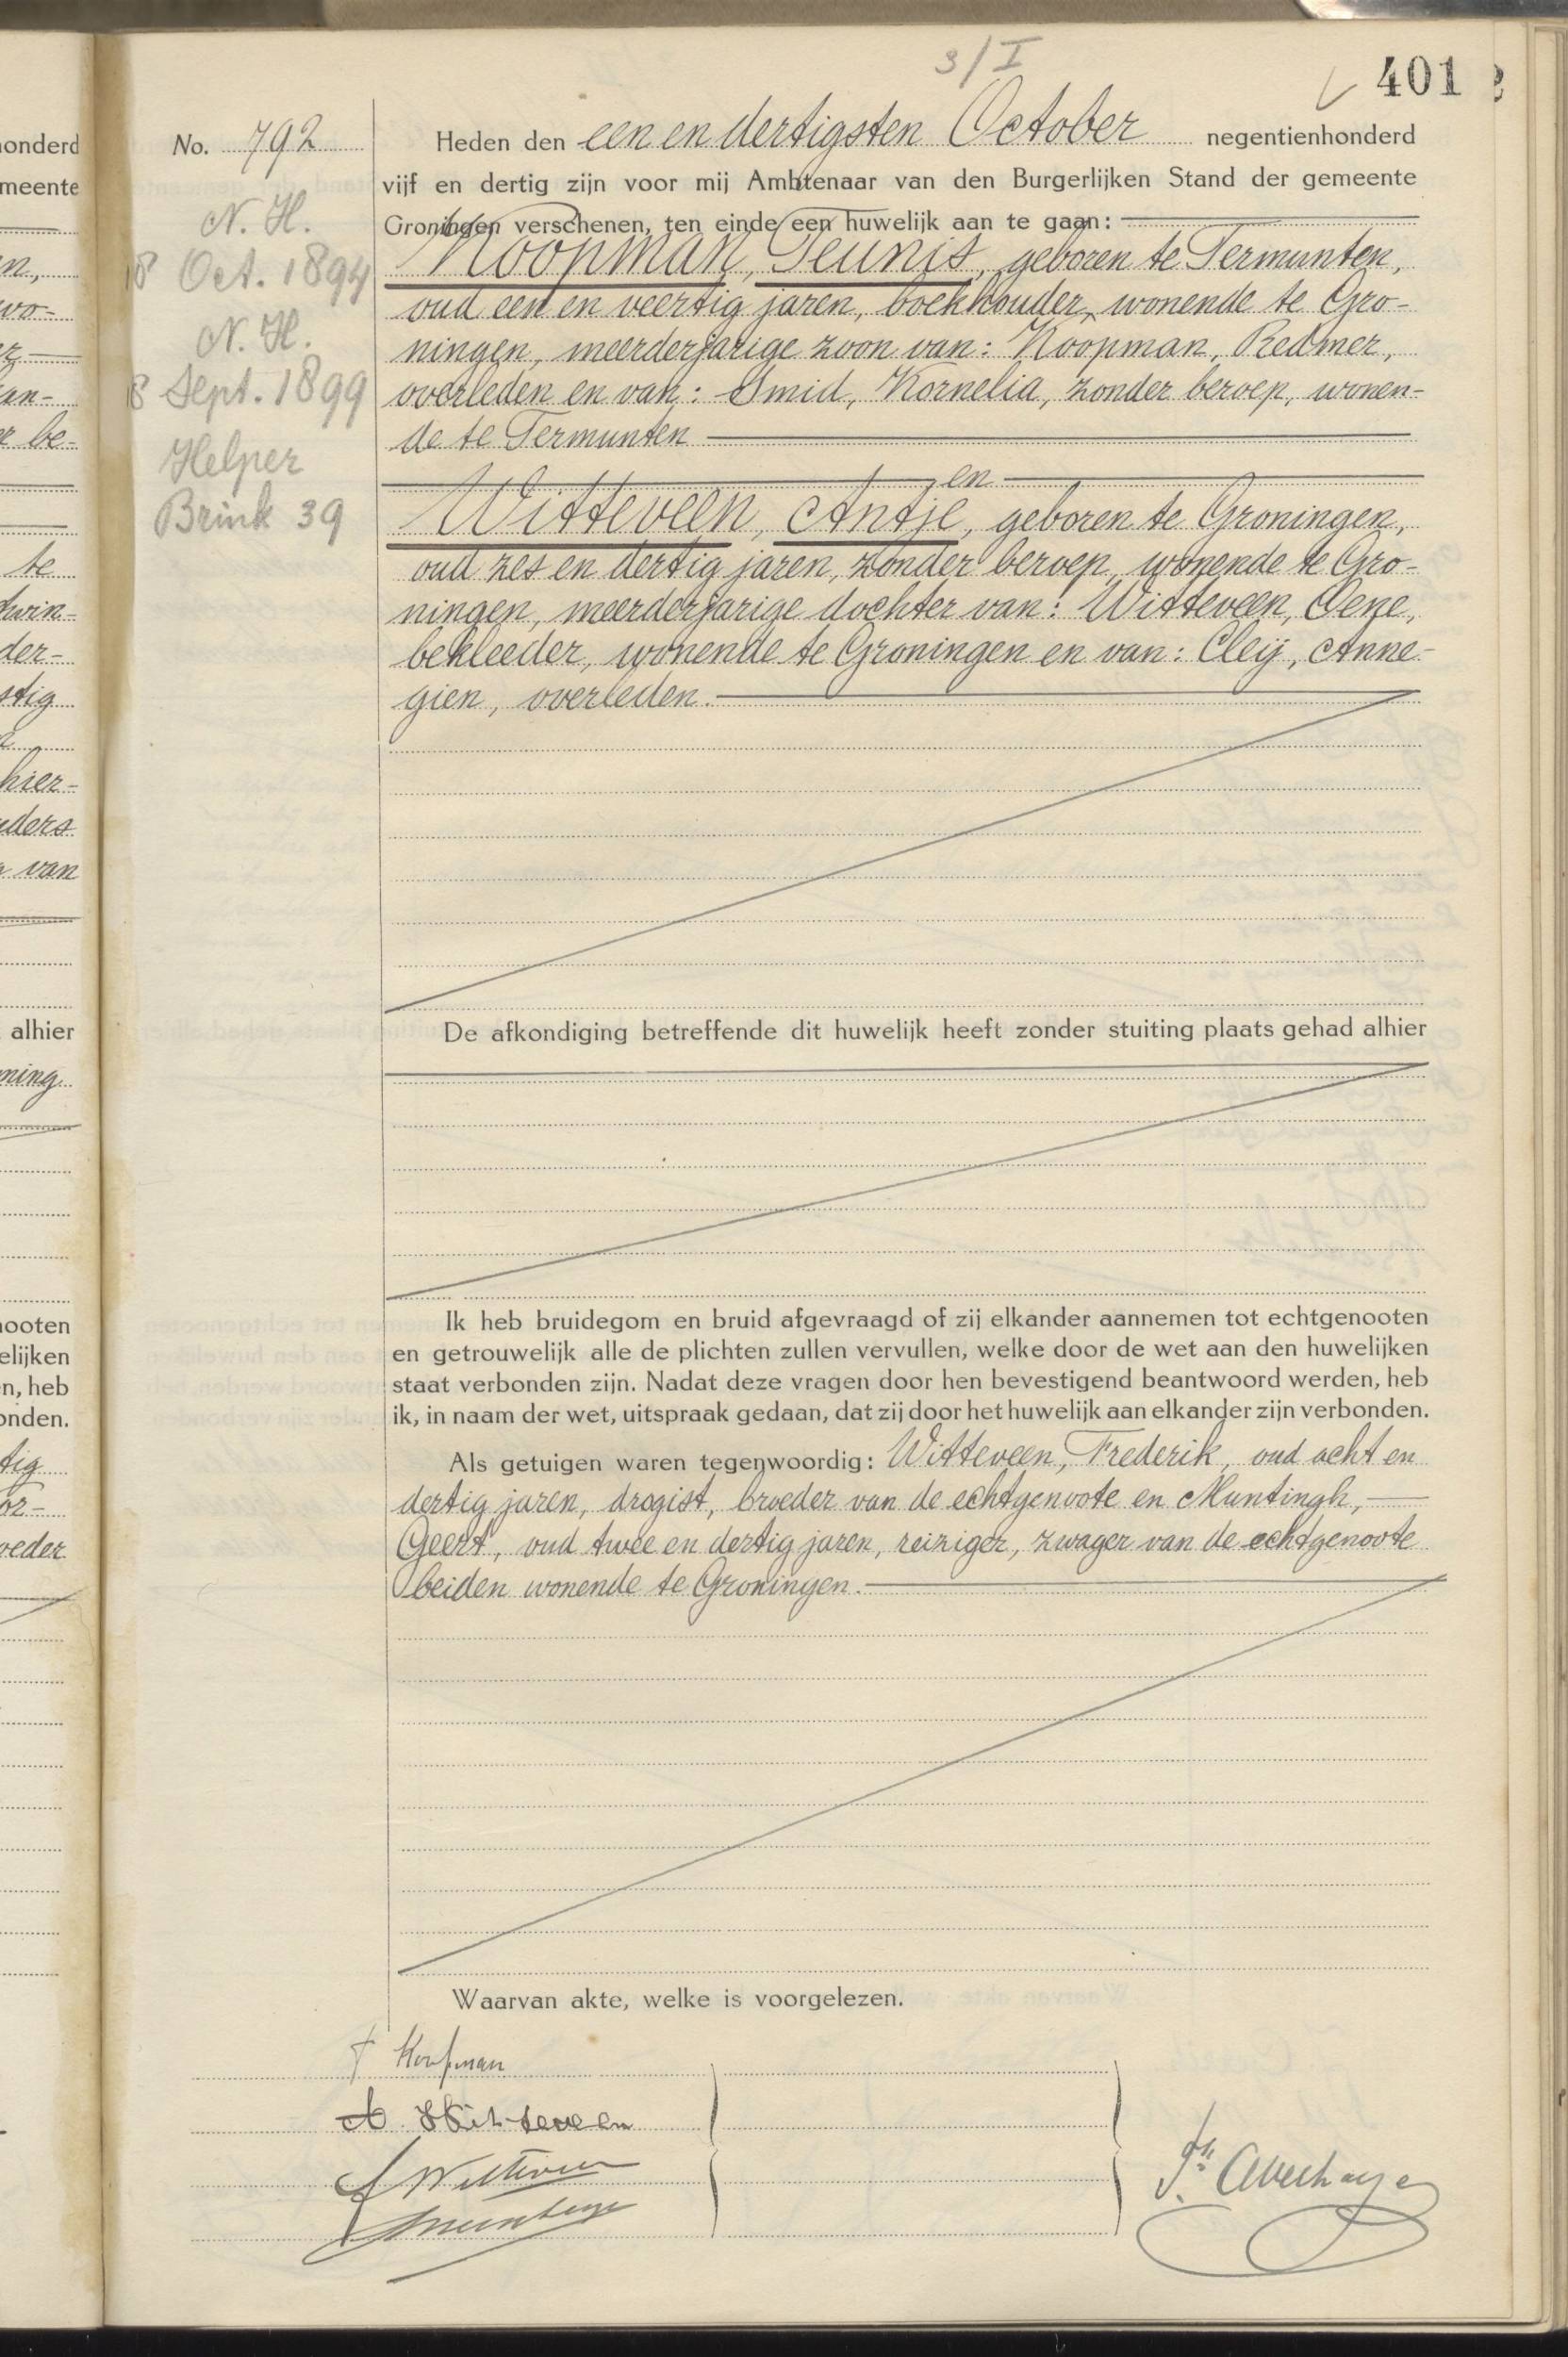 3/I
401
No. 792
Heden den een en dertigsten October negentienhonderd
vijf en dertig zijn voor mij Ambtenaar van den Burgerlijken Stand der gemeente
Groningen verschenen, ten einde een huwelijk aan te gaan:
Koopman, Teunis, geboren te Termunten,
oud een en veertig jaren, boekhouder, wonende te Gro-
ningen, meerderjarige zoon van: Koopman, Redmer,
overleden en van: Smid, Kornelia, zonder beroep, wonen-
de te Termunten
en
Witteveen, Antje, geboren te Groningen,
oud zes en dertig jaren, zonder beroep, wonende te Gro-
ningen, meerderjarige dochter van: Witteveen, Oene,
bekleeder, wonende te Groningen en van: Cleij, Anne-
gien, overleden.
N. H.
8 Oct. 1894
N. H.
8 Sept. 1899
Helper
Brink 39
De afkondiging betreffende dit huwelijk heeft zonder stuiting plaats gehad alhier
Ik heb bruidegom en bruid afgevraagd of zij elkander aannemen tot echtgenooten
en getrouwelijk alle de plichten zullen vervullen, welke door de wet aan den huwelijken
staat verbonden zijn. Nadat deze vragen door hen bevestigend beantwoord werden, heb
ik, in naam der wet, uitspraak gedaan, dat zij door het huwelijk aan elkander zijn verbonden.
Als getuigen waren tegenwoordig: Witteveen, Frederik, oud acht en
dertig jaren, drogist, broeder van de echtgenoote en Muntingh,
Geert, oud twee en dertig jaren, reiziger, zwager van de echtgenoote
beiden wonende te Groningen.
Waarvan akte, welke is voorgelezen.
T Koopman
A Witteveen
F Witteveen